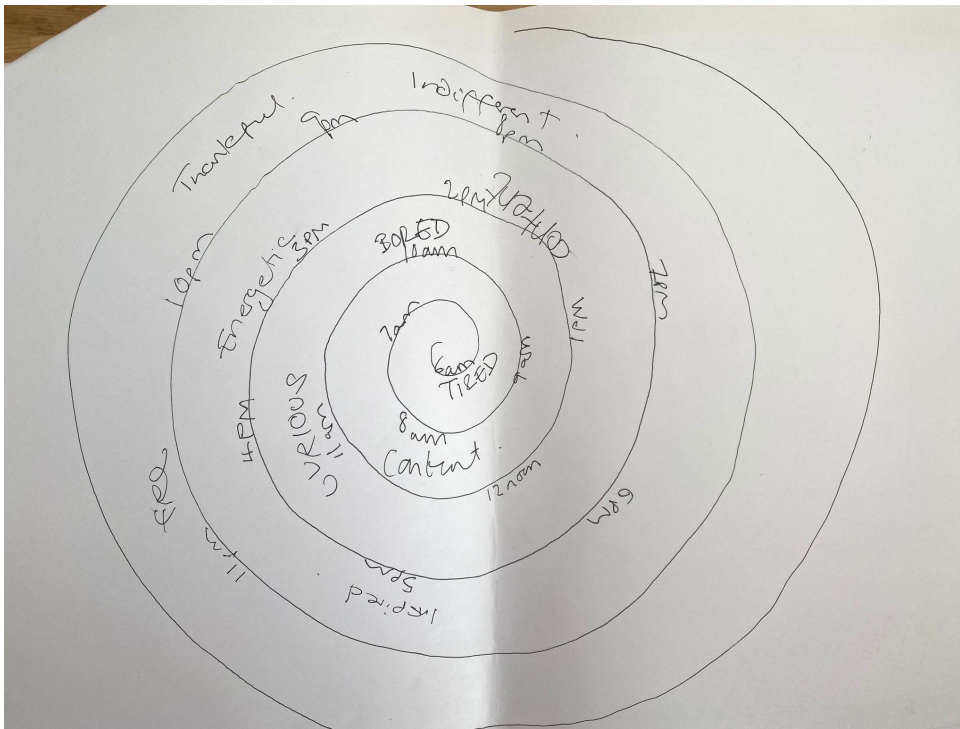 6am
TIRED
7am
8am
Content.
9am
10am
BORED
11am
CURIOUS
12 noon
1PM
2PM
3PM
Energetic
4PM
5pm
Inspired
6PM
7PM
8pm
Indifferent.
9pm
Thankful.
10pm
11pm